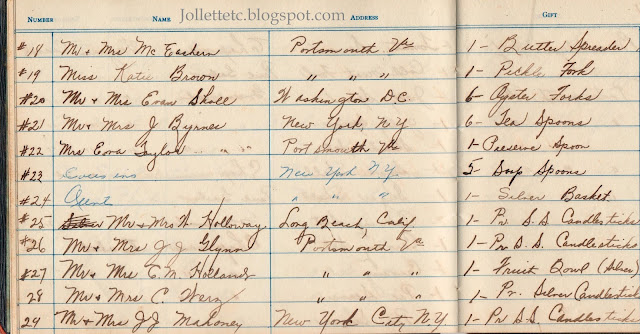 Jollettetc.blogspot.com
NUMBER NAME ADDRESS GIFT
#18 Mr + Mrs McEachern Portsmouth Va 1- Butter Spreader
#19 Miss Katie Brown " " " 1- Pickle Fork
#20 Mr + Mrs Evan Sholl Washington D.C. 6- Oyster Forks
#21 Mr + Mrs J Byrnes New York, N.Y 6- Tea Spoons
#22 Mrs Eva Taylor " " " Portsmouth Va 1- Preserve Spoon
#23 Cousins New York N.Y. 5- Soup Spoons
#24 Aunt " " " 1- Silver Basket
#25 Mr + Mrs W Holloway Long Beach, Calif 1- Pr S.S. Candlesticks
#26 Mr + Mrs J J Glynn Portsmouth Va 1- Pr S.S. Candlesticks
#27 Mr + Mrs E.N. Holland " " " 1- Fruit Bowl (Silver)
28 Mr + Mrs C. " " " 1- Pr. Silver Candlesticks
29 Mr + Mrs J.J Mahoney New York City N.Y 1- Pr S.S. Candlesticks